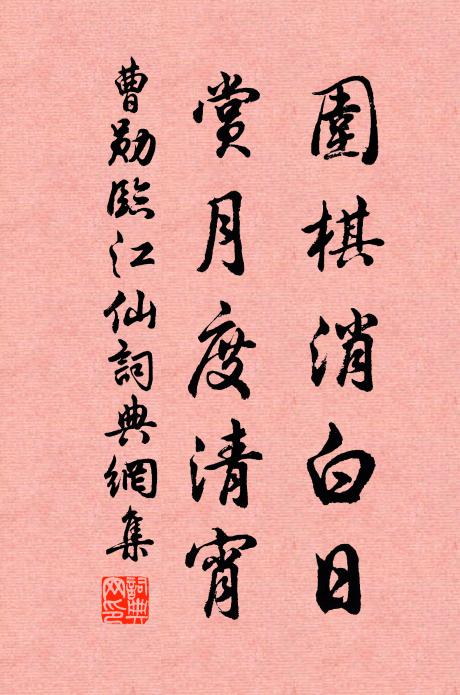 圍棋消白日
賞月度清宵
曹勛臨江仙詞典網集
詞典網印